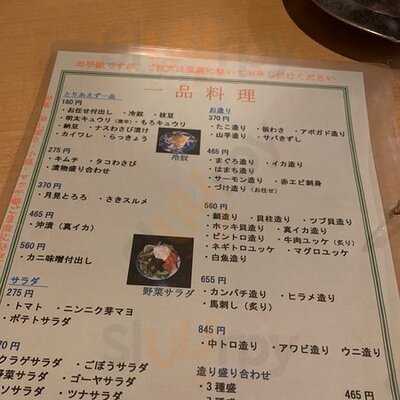 お手数ですが、ご注文は用紙に書いてお申し付けください
一品料理
とりあえず一品
180円
・お任せ付出し ・冷奴 ・枝豆
・明太キュウリ ・もろキュウリ
・納豆 ・ナスわさび漬け
・カイワレ ・らっきょう
275円
・キムチ ・タコわさび
・漬物盛り合わせ
冷奴
370円
・月見とろろ ・さきスルメ
465円
・沖漬(真イカ)
560円
・カニ味噌付出し
野菜サラダ
サラダ
275円
・トマト ・ニンニク芽マヨ
・ポテトサラダ
70円
クラゲサラダ ・ごぼうサラダ
野菜サラダ ・ゴーヤサラダ
ソサラダ ・ツナサラダ
お造り
370円
・たこ造り ・数わさ ・アボガド造り
・山芋造り ・サバきずし
465円
・まぐろ造り ・イカ造り
・はまち造り
・サーモン造り ・赤エビ刺身
・づけ造り(お任せ)
560円
・鯛造り ・貝柱造り ・ツブ貝造り
・ホッキ貝造り ・真イカ造り
・ビントロ造り ・牛肉ユッケ(炙り)
・ネギトロユッケ ・マグロユッケ
・白魚造り
655円
・カンパチ造り ・ヒラメ造り
・馬刺し(炙り)
845円
・中トロ造り ・アワビ造り ウニ造り
造り盛り合わせ
・3種盛 465円